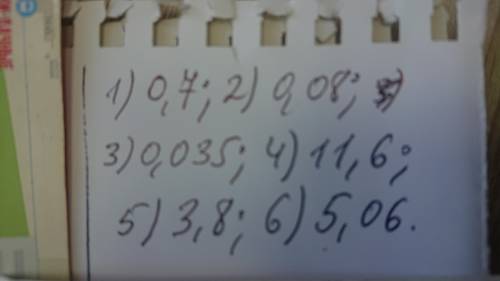 1) 0,7; 2) 0,08;
3) 0,035; 4) 11,6;
5) 3,8; 6) 5,06.